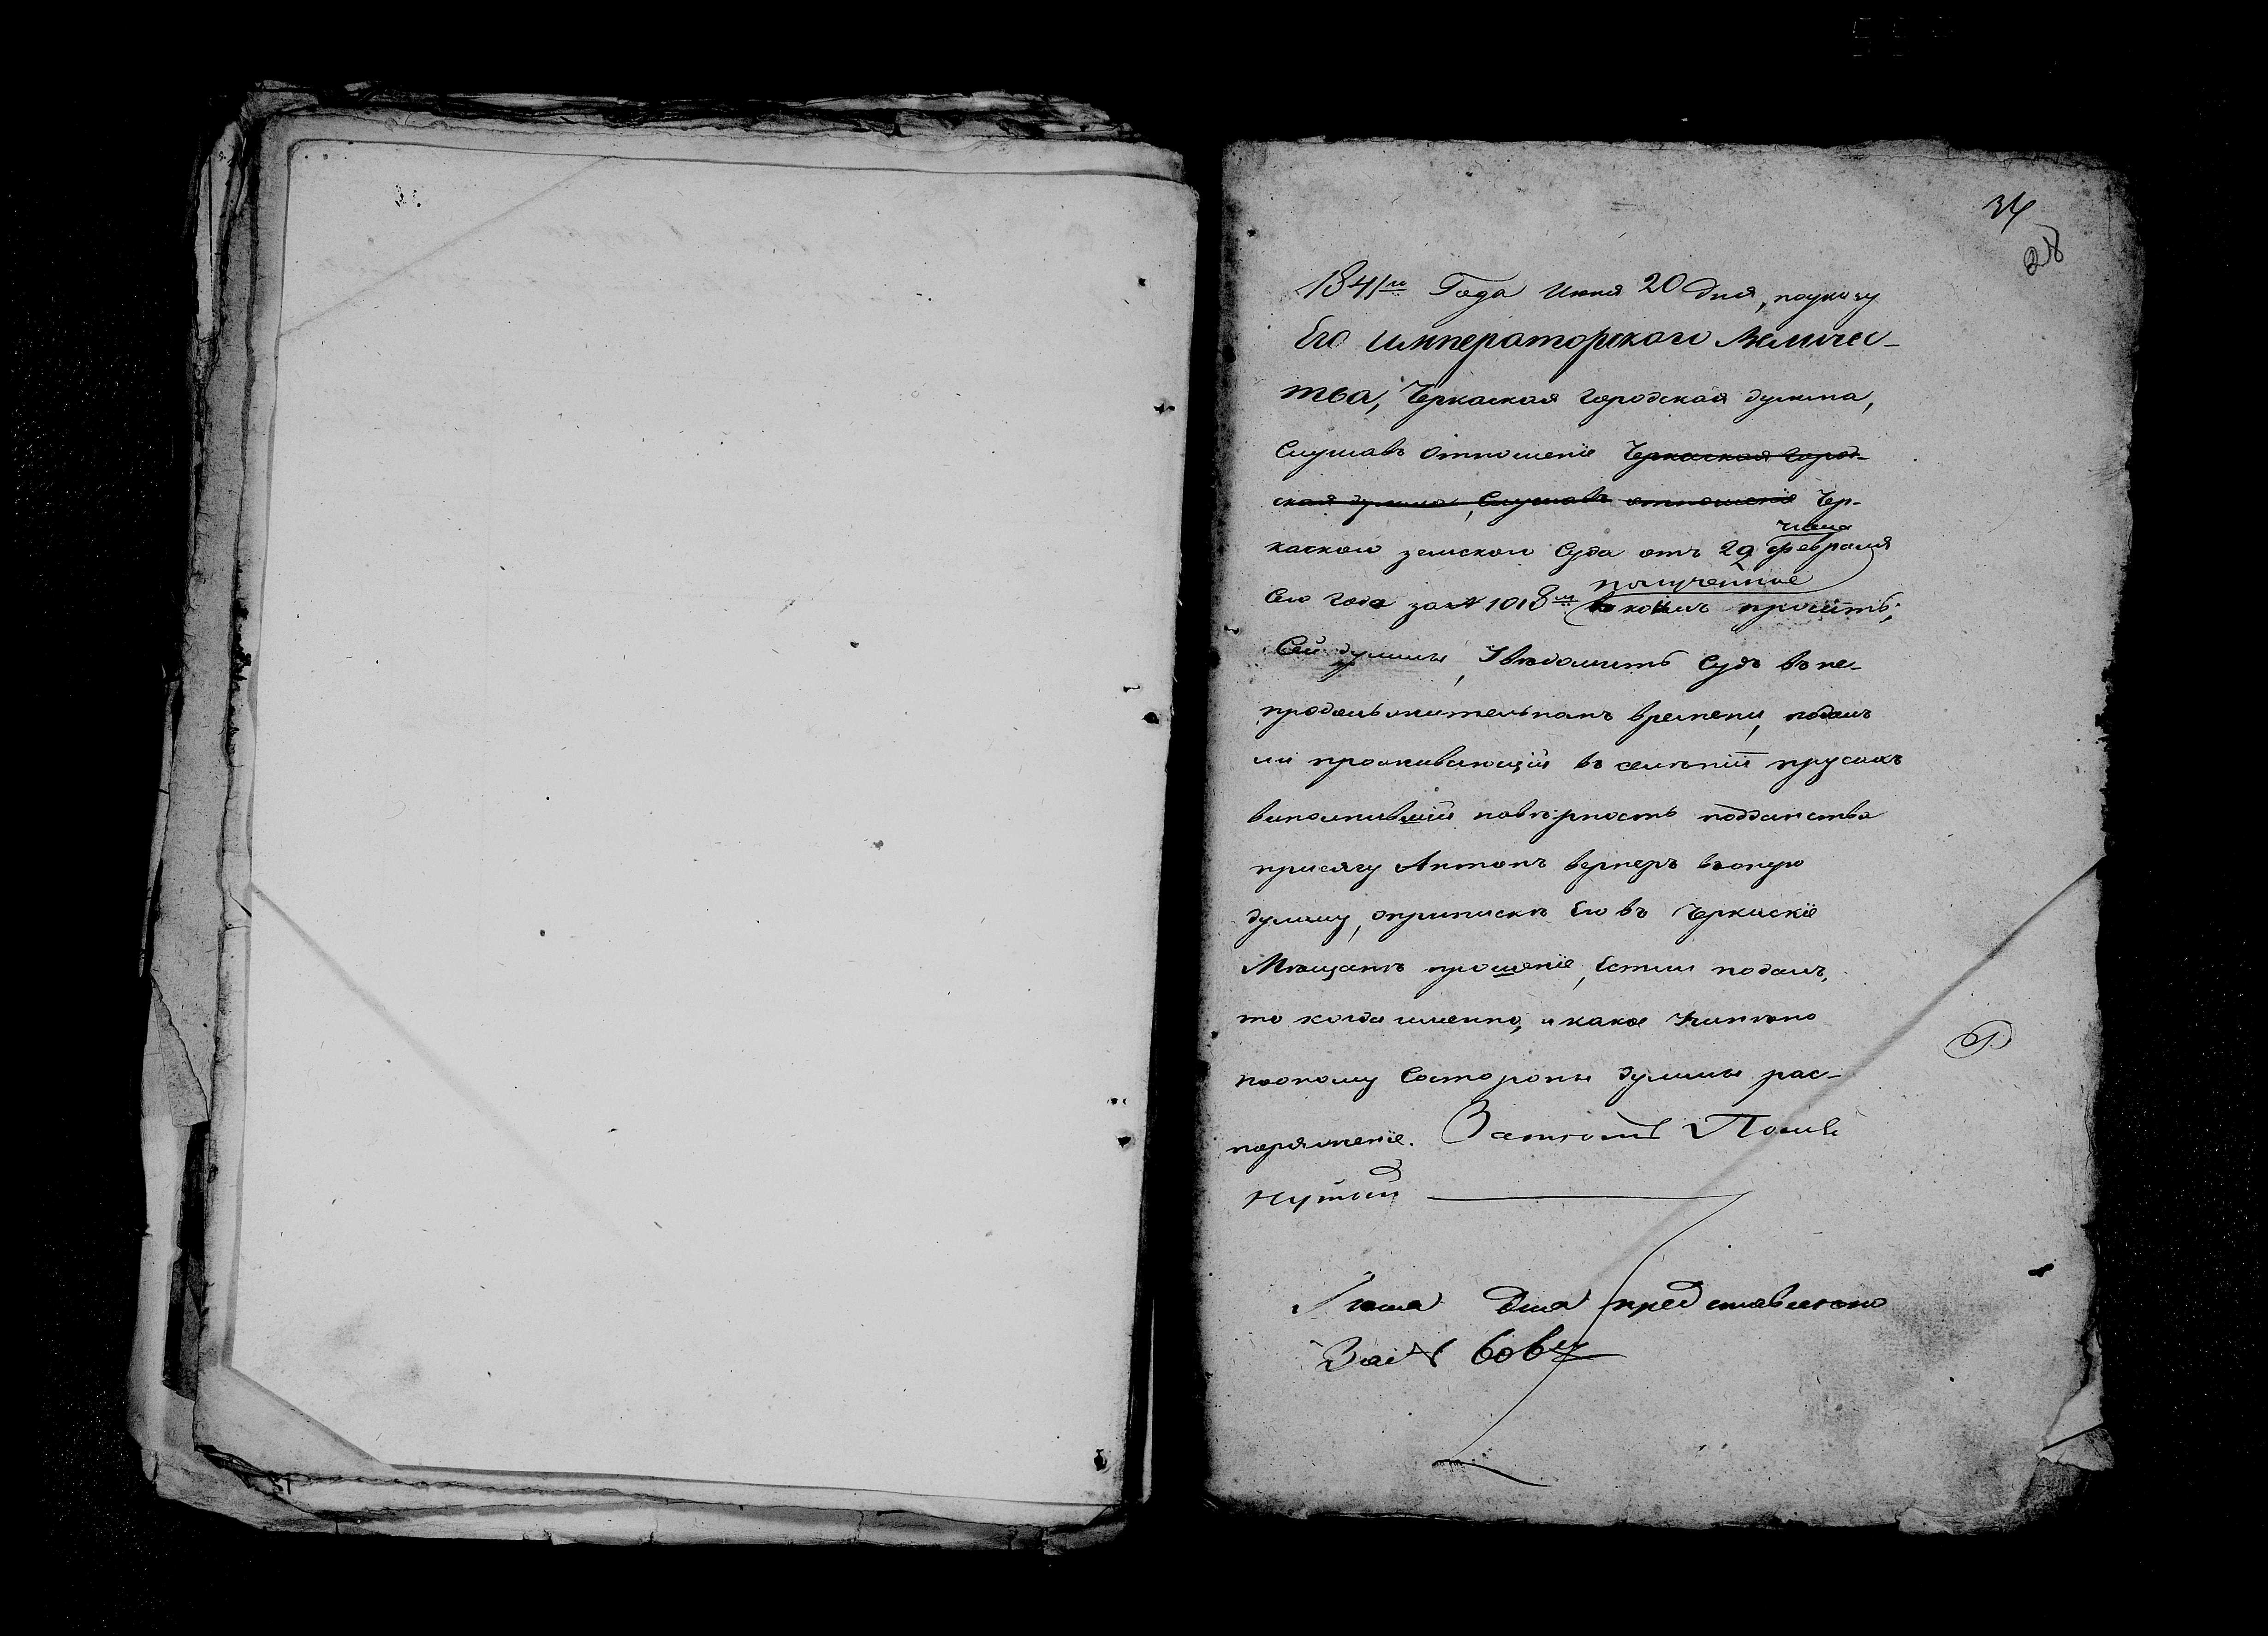 34
28
1841го Года Июня 20 дня, поуказу
Его Императорскаго Величес-
тва, Черкаская городская дума,
Слушав отношение Черкаская город-
ская дума, Слушавъ отношение Чер-
каскаго земскаго Суда отъ 29 февраля
полученное
Сего года за № 1018м в коемъ проситъ,
Сей думы, Уведомить Судъ въ не-
продолжительномъ времени, подалъ
ли проживающий въ селении прусакъ
выполнивший наверность подданства
присягу Антонъ вернеръ воную
думу, оприписке Его въ Черкаские
Мещане прошение, Естли подалъ,
то когда именно, и какое
поономy Состороны думы рас-
поряжение.
дня представлено
За №